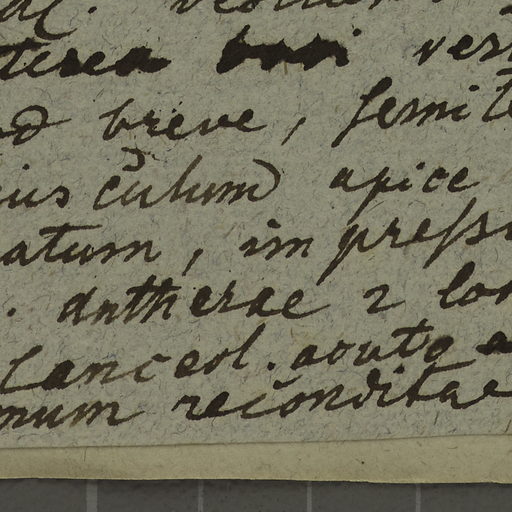 terea basi
breve, semite
ius culum apice
atum, im pressi
. Antherae 2 lon
Lanceol. acuto a
num reconditae